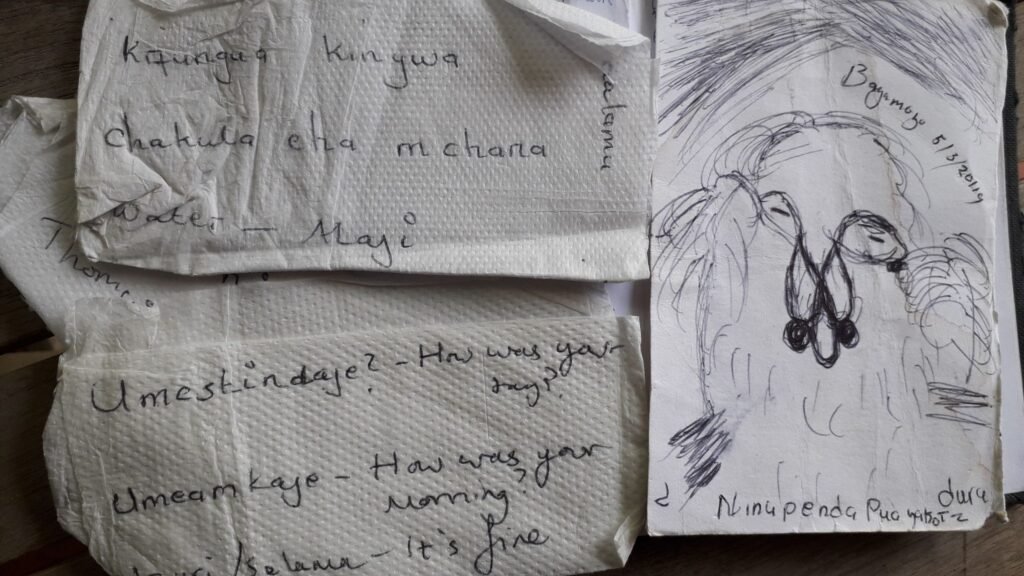 Kifungua kingwa
chakula cha mchana
Water - Maji
salamu
Umeshindaje? - How was your
day?
Umeamkaje - How was your
Morning?
/salama - It's fine
Bagamoyo 5/3/2019
Ninapenda Pua